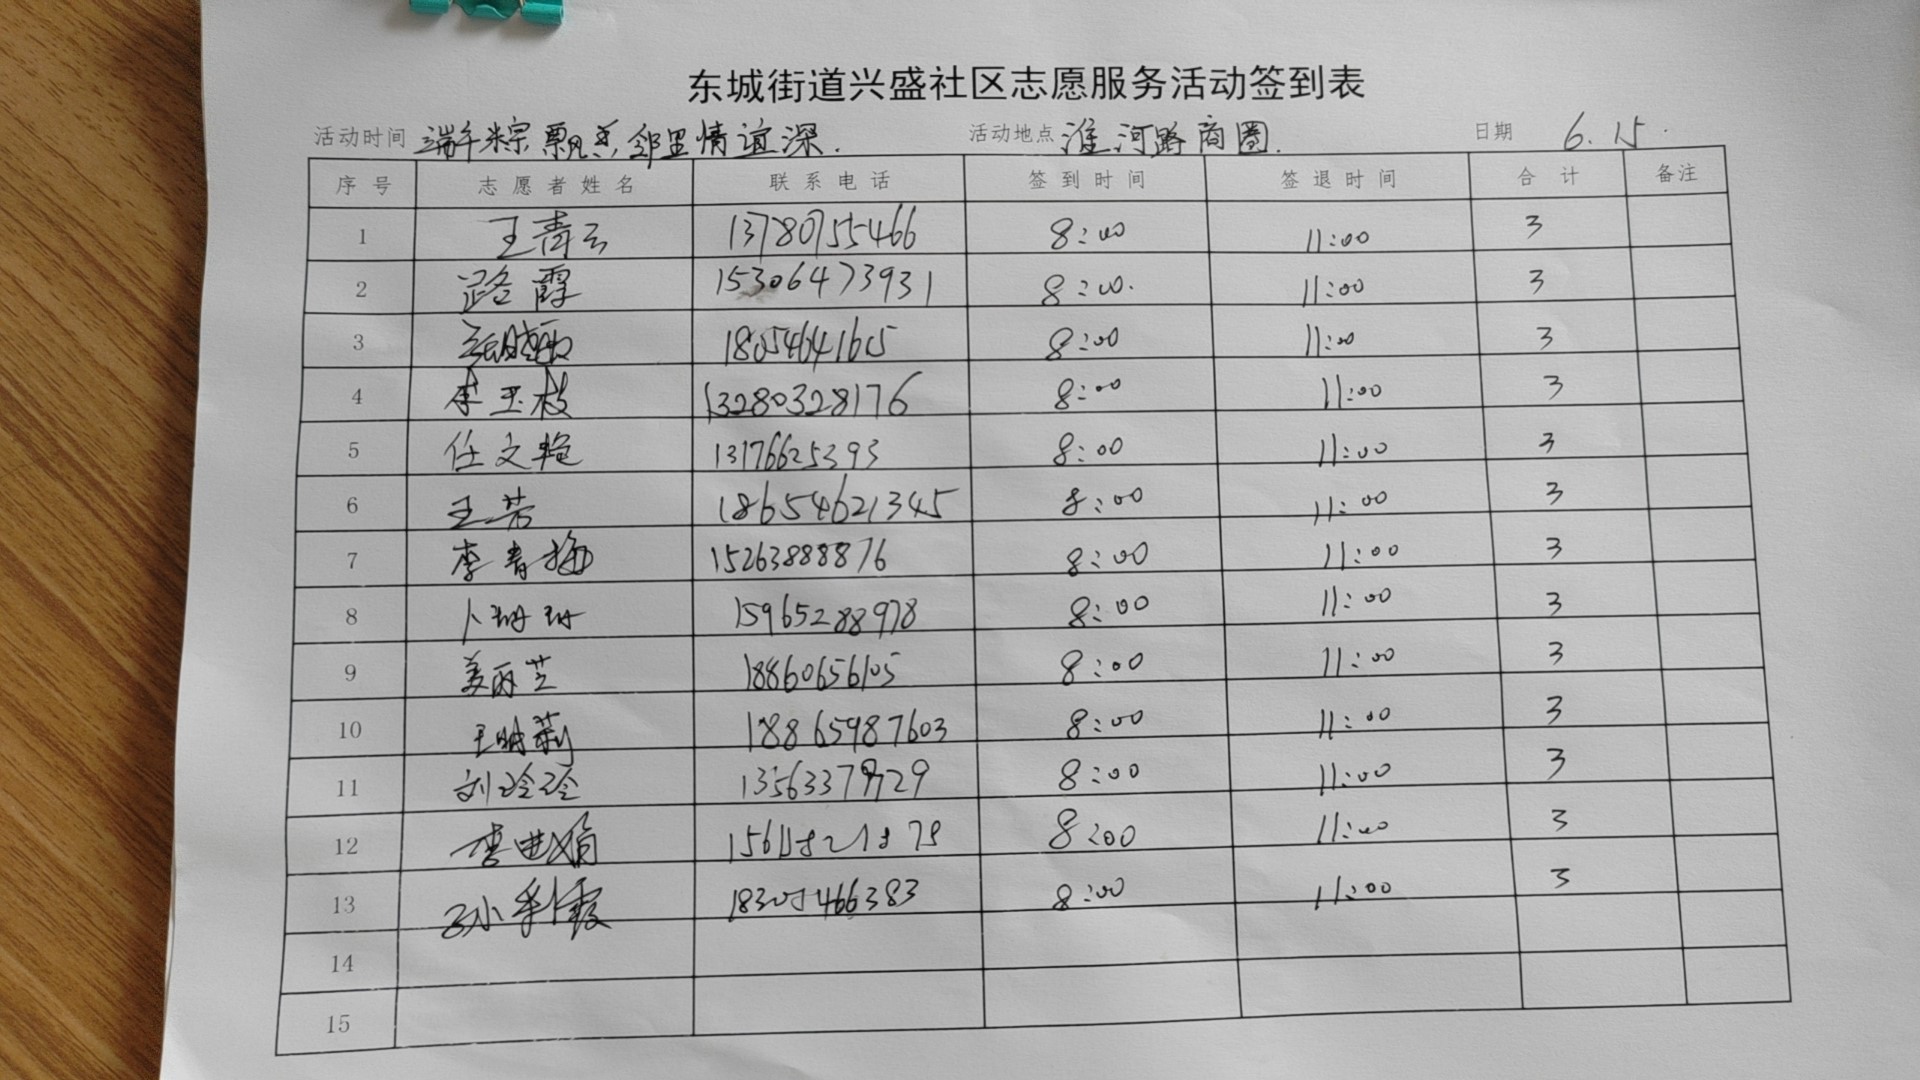 东城街道兴盛社区志愿服务活动签到表
活动时间 端午粽飘香 邻里情谊深. 活动地点 淮河路商圈. 日期 6.15.
序号 志愿者姓名 联系电话 签到时间 签退时间 合计 备注
1 王青云 13780755466 8:00 11:00 3
2 路霞 15306473931 8:00. 11:00 3
3 8:00 11:00 3
4 李玉枝 13280328176 8:00 11:00 3
5 任文艳 13176625393 8:00 11:00 3
6 王芳 18654621345 8:00 11:00 3
7 李青梅 15263888876 8:00 11:00 3
8 卜珊珊 15965288978 8:00 11:00 3
9 姜丽芝 18860656105 8:00 11:00 3
10 18865987603 8:00 11:00 3
11 刘玲玲 8:00 11:00 3
12 8:00 11:00 3
13 孙利霞 18305466383 8:00 11:00 3
14
15